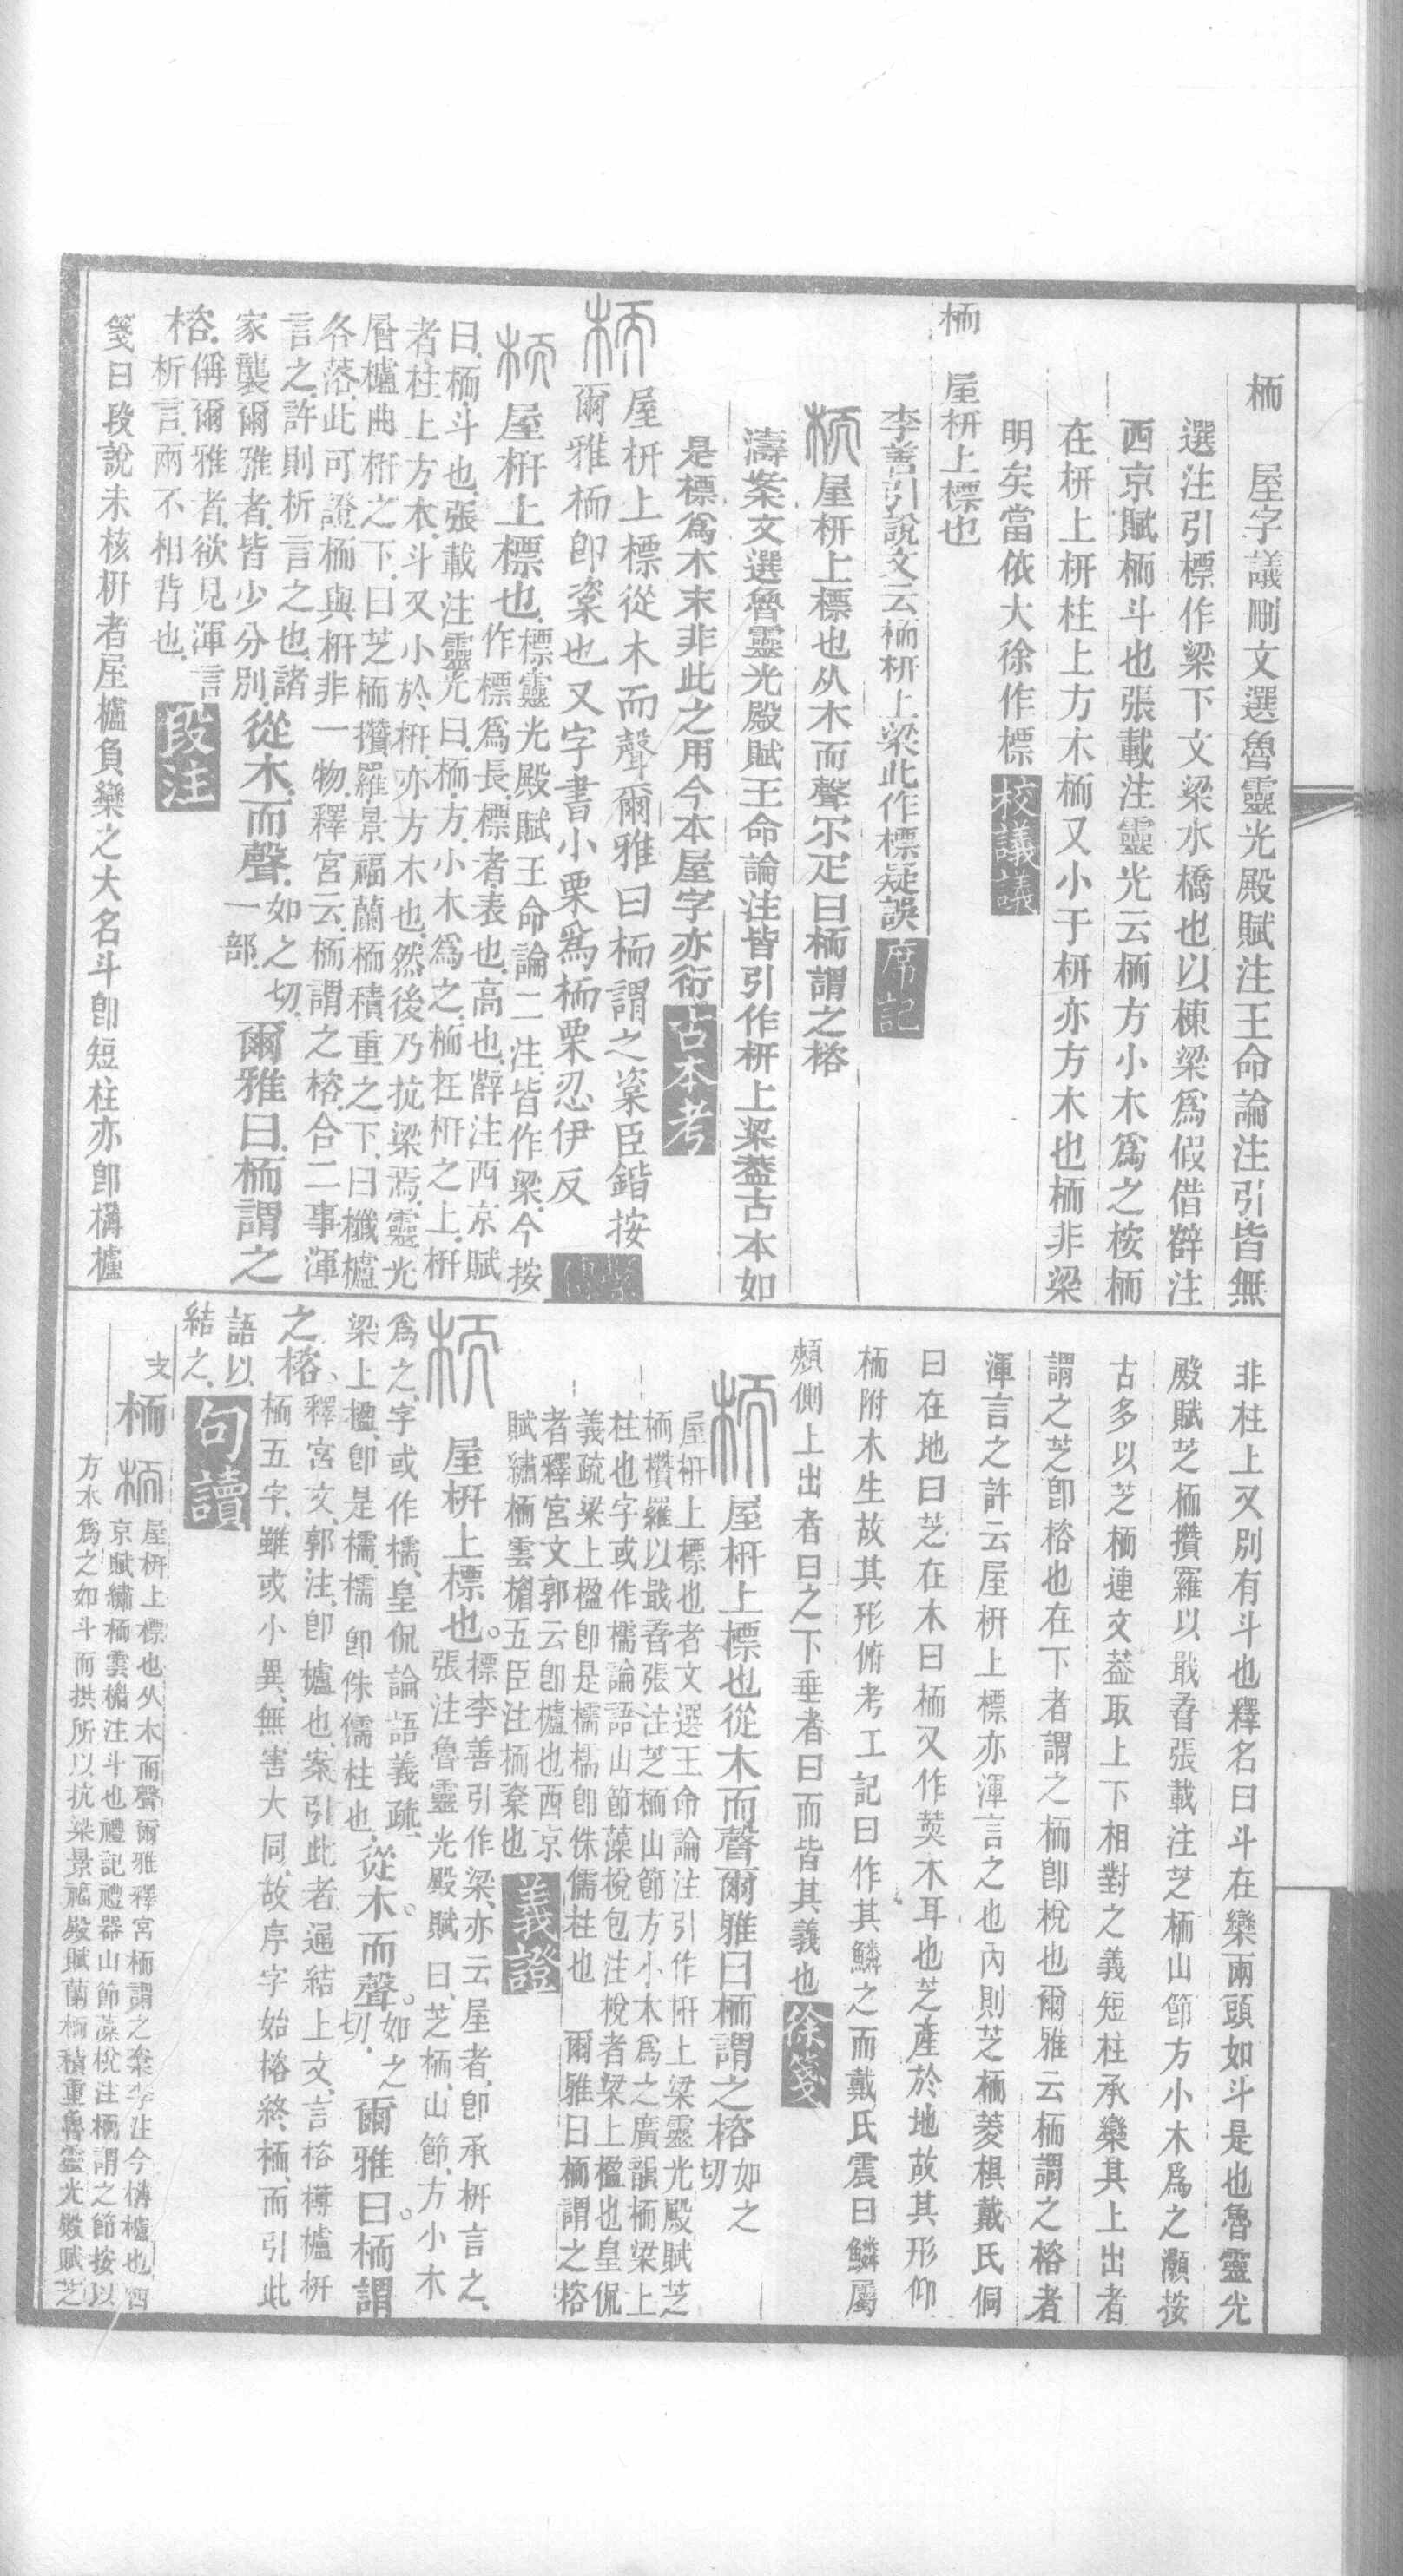 栭　屋字議刪文選魯靈光殿賦注王命論注引皆無
選注引標作梁下文梁水橋也以棟梁爲假借薛注
西京賦栭斗也張載注靈光云栭方小木爲之桉栭
在枅上枅柱上方木栭又小于枅亦方木也栭非梁
明矣當依大徐作標 校議議
栭　屋枅上標也
李善引說文云栭枅上梁此作標疑誤 席記
栭屋枅上標也从木而聲尒疋曰栭謂之楶
濤案文選魯靈光殿賦王命論注皆引作枅上梁葢古本如
是標爲木末非此之用今本屋字亦衍 古本考
栭屋枅上標從木而聲爾雅曰栭謂之楶臣鍇按
爾雅栭卽楶也又字書小栗爲栭栗忍伊反
栭屋枅上標也
標靈光殿賦王命論二注皆作梁今按
作標爲長標者表也高也薛注西京賦
曰栭斗也張載注靈光曰栭方小木爲之栭在枅之上枅
者柱上方木斗又小於枅亦方木也然後乃抗梁焉靈光
層櫨曲枅之下曰芝栭攢羅景福蘭栭積重之下曰櫼櫨
各落此可證栭與枅非一物釋宮云栭謂之楶合二事渾
言之許則析言之也諸
家襲爾雅者皆少分別從木而聲如之切一部爾雅曰栭謂之
楶偁爾雅者欲見渾言
析言兩不相背也 段注
箋曰段說未核枅者屋櫨負欒之大名斗卽短柱亦卽構櫨
非柱上又別有斗也釋名曰斗在欒兩頭如斗是也魯靈光
殿賦芝栭攢羅以戢孴張載注芝栭山節方小木爲之灝按
古多以芝栭連文葢取上下相對之義短柱承欒其上出者
謂之芝卽楶也在下者謂之栭卽梲也爾雅云栭謂之楶者
渾言之許云屋枅上標亦渾言之也內則芝栭菱椇戴氏侗
曰在地曰芝在木曰栭又作萸木耳也芝產於地故其形仰
栭附木生故其形俯考工記曰作其鱗之而戴氏震曰鱗屬
頰側上出者曰之下垂者曰而皆其義也 徐箋
栭屋枅上標也從木而聲爾雅曰栭謂之楶如之切
屋枅上標也者文選王命論注引作枅上梁靈光殿賦芝
栭欑羅以戢孴張注芝栭山節方小木爲之廣韻栭梁上
柱也字或作檽論語山節藻梲包注梲者梁上楹也皇侃
義疏梁上楹卽是檽檽卽侏儒柱也　爾雅曰栭謂之楶
者釋宮文郭云卽櫨也西京
賦繡栭雲楣五臣注栭楶也 義證
栭　屋枅上標也。標李善引作梁亦云屋者卽承枅言之
張注魯靈光殿賦曰芝栭山節方小木
爲之字或作檽皇侃論語義疏
梁上楹卽是檽檽卽侏儒柱也從木而聲。如之切爾雅曰栭謂
之楶。釋宮文郭注卽櫨也案引此者通結上文言楶欂櫨枅
栭五字雖或小異無害大同故序字始楶終栭而引此
語以
結之 句讀
支
栭栭屋枅上標也从木而聲爾雅釋宮栭謂之楶李注今構櫨也西
京賦繡栭雲楣注斗也禮記禮器山節藻梲注栭謂之節按以
方木爲之如斗而拱所以抗梁景福殿賦蘭栭積重魯靈光殿賦芝